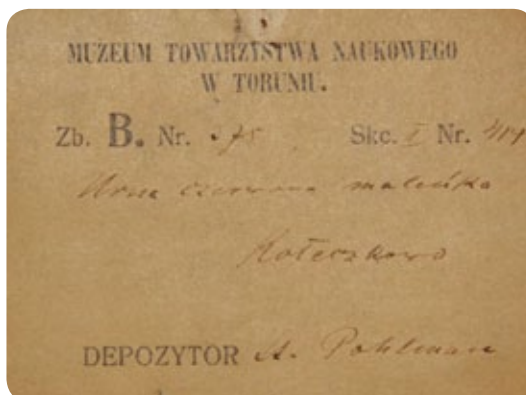 MUZEUM TOWARZYSTWA NAUKOWEGO
W TORUNIU.
Zb. B. Nr. 275 Skc. I Nr.
Urna czerwona maleńka
Koleczkowo
DEPOZYTOR A. Pohlmann